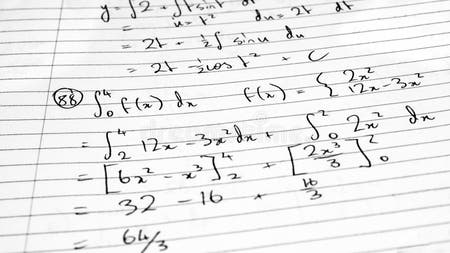 y = ∫ 2 + ∫ t sin t² dt
u = t² du = 2t dt
= 2t + ½ ∫ sin u du
= 2t - ½ cos t² + C
(88) ∫₀⁴ f(x) dx f(x) = { 2x²
12x - 3x²
= ∫₂⁴ 12x - 3x² dx + ∫₀² 2x² dx
= [6x² - x³]₂⁴ + [2x³/3]₀²
= 32 - 16 + 16/3
= 64/3